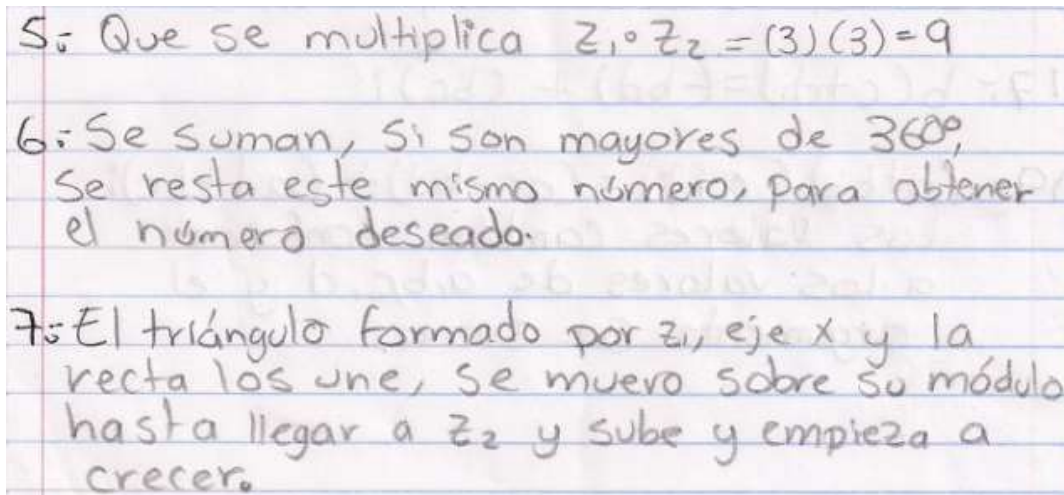 5.- Que se multiplica z₁∘z₂ = (3)(3) = 9
6.- Se suman, si son mayores de 360°,
se resta este mismo número, para obtener
el número deseado.
7.- El triángulo formado por z₁, eje x y la
recta los une, se muevo sobre su módulo
hasta llegar a z₂ y sube y empieza a
crecer.